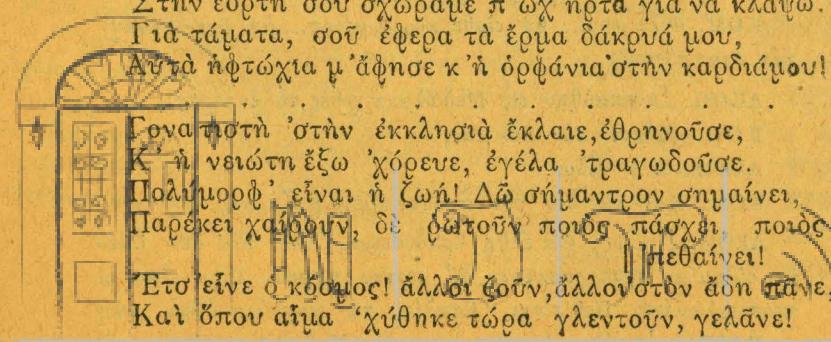 Στὴν ἑορτή σου σχώραμε π' ὠχ ἦρτα γιὰ νὰ κλάψω.
Γιὰ τάματα, σοῦ ἔφερα τὰ ἔρμα δάκρυά μου,
Αὐτὰ ἡφτώχια μ' ἄφησε κ' ἡ ὀρφάνια 'στὴν καρδιάμου!
. . . . . . . . . .
Γονατιστὴ 'στὴν ἐκκλησιὰ ἔκλαιε, ἐθρηνοῦσε,
Κ' ἡ νειώτη ἔξω 'χόρευε, ἐγέλα 'τραγωδοῦσε.
Πολύμορφ' εἶναι ἡ ζωή! Δῶ σήμαντρον σημαίνει,
Παρέκει χαίρουν, δὲ ρωτοῦν ποιὸς πάσχει, ποιὸς
[πεθαίνει!
Ἔτσ' εἶνε ὁ κόσμος! ἄλλοι ζοῦν, ἄλλοι 'στὸν ἄδη πᾶνε,
Καὶ ὅπου αἷμα 'χύθηκε τώρα γλεντοῦν, γελᾶνε!